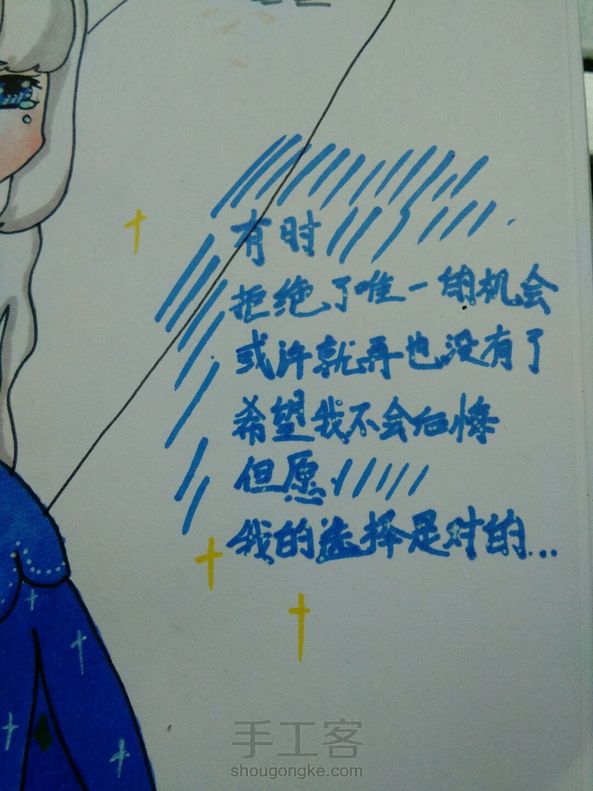 有时
拒绝了唯一的机会
或许就再也没有了
希望我不会后悔
但愿
我的选择是对的...
手工客
shougongke.com